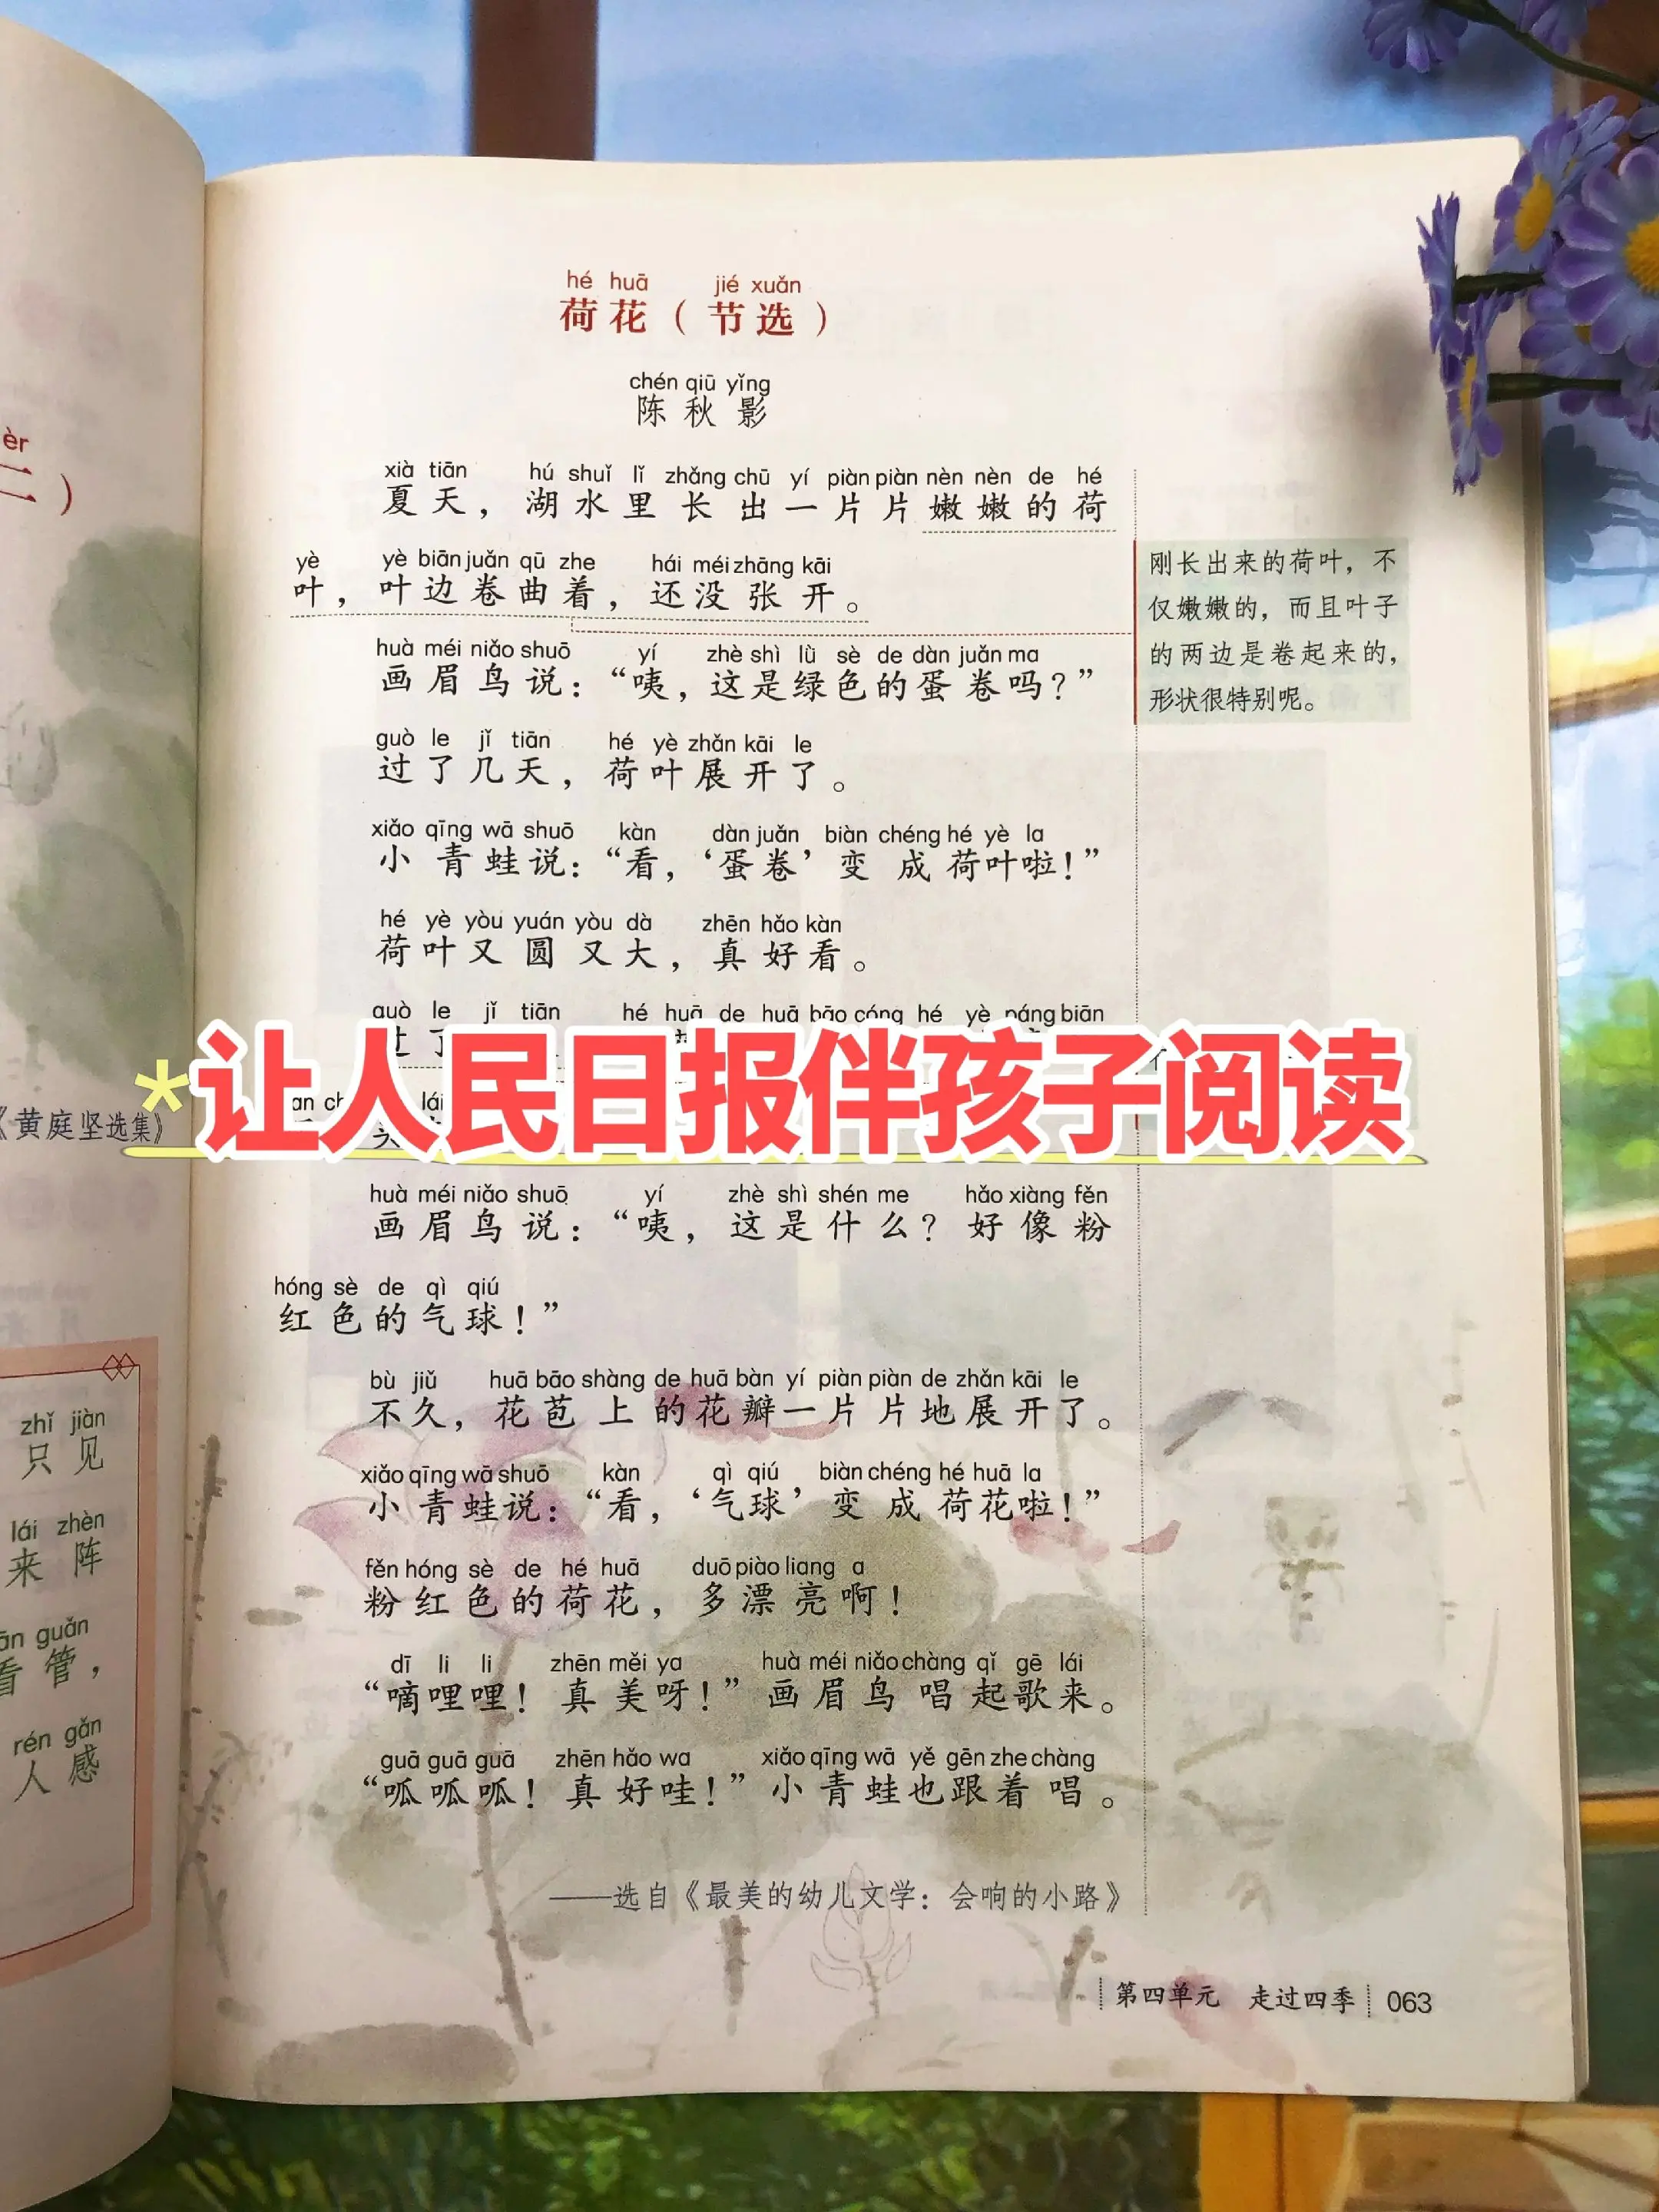 hé huā jié xuǎn
荷花（节选）
chén qiū yǐng
陈秋影
xià tiān hú shuǐ lǐ zhǎng chū yí piàn piàn nèn nèn de hé
夏天，湖水里长出一片片嫩嫩的荷
yè yè biān juǎn qū zhe hái méi zhāng kāi
叶，叶边卷曲着，还没张开。
huà méi niǎo shuō yí zhè shì lǜ sè de dàn juǎn ma
画眉鸟说：“咦，这是绿色的蛋卷吗？”
guò le jǐ tiān hé yè zhǎn kāi le
过了几天，荷叶展开了。
xiǎo qīng wā shuō kàn dàn juǎn biàn chéng hé yè la
小青蛙说：“看，‘蛋卷’变成荷叶啦！”
hé yè yòu yuán yòu dà zhēn hǎo kàn
荷叶又圆又大，真好看。
guò le jǐ tiān hé huā de huā bāo cóng hé yè páng biān
让人民日报伴孩子阅读
huà méi niǎo shuō yí zhè shì shén me hǎo xiàng fěn
画眉鸟说：“咦，这是什么？好像粉
hóng sè de qì qiú
红色的气球！”
bù jiǔ huā bāo shàng de huā bàn yí piàn piàn de zhǎn kāi le
不久，花苞上的花瓣一片片地展开了。
xiǎo qīng wā shuō kàn qì qiú biàn chéng hé huā la
小青蛙说：“看，‘气球’变成荷花啦！”
fěn hóng sè de hé huā duō piào liang a
粉红色的荷花，多漂亮啊！
dī li li zhēn měi ya huà méi niǎo chàng qǐ gē lái
“嘀哩哩！真美呀！”画眉鸟唱起歌来。
guā guā guā zhēn hǎo wa xiǎo qīng wā yě gēn zhe chàng
“呱呱呱！真好哇！”小青蛙也跟着唱。
——选自《最美的幼儿文学：会响的小路》
刚长出来的荷叶，不
仅嫩嫩的，而且叶子
的两边是卷起来的，
形状很特别呢。
第四单元 走过四季 063
èr
二）
《黄庭坚选集》
zhǐ jiàn
只见
lái zhèn
来阵
guǎn
看管，
rén gǎn
人感